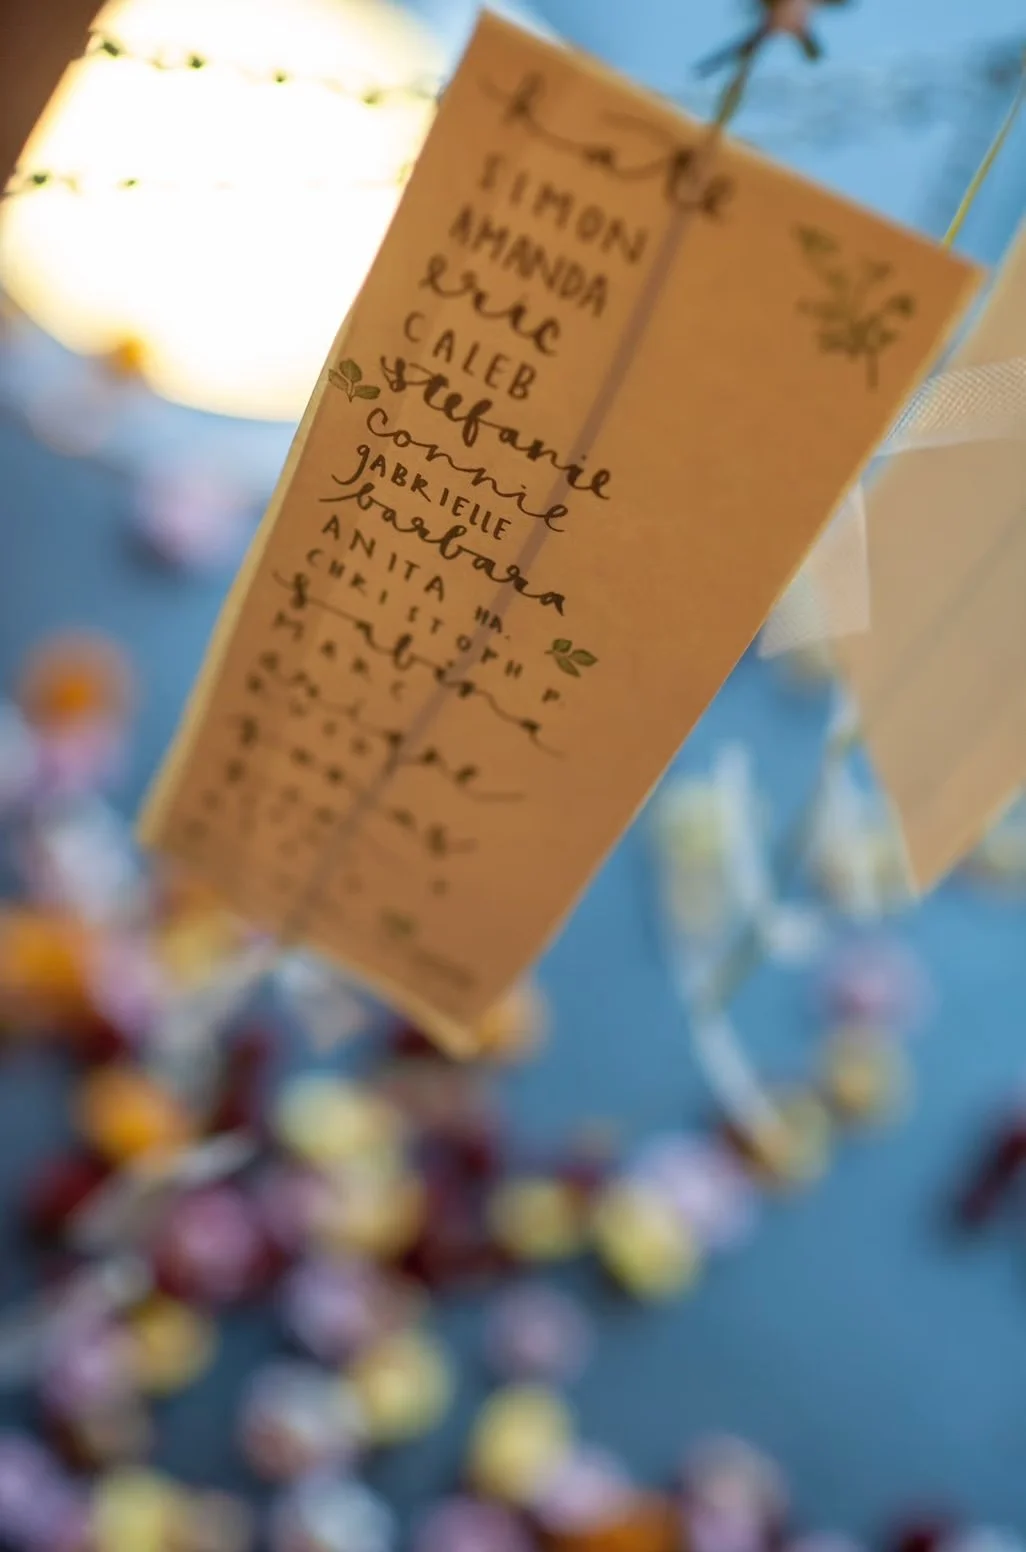 kate
SIMON
AMANDA
eric
CALEB
stefanie
connie
gABRIELLE
barbara
ANITA HA.
CHRISTOPH P.
sabina
MARC